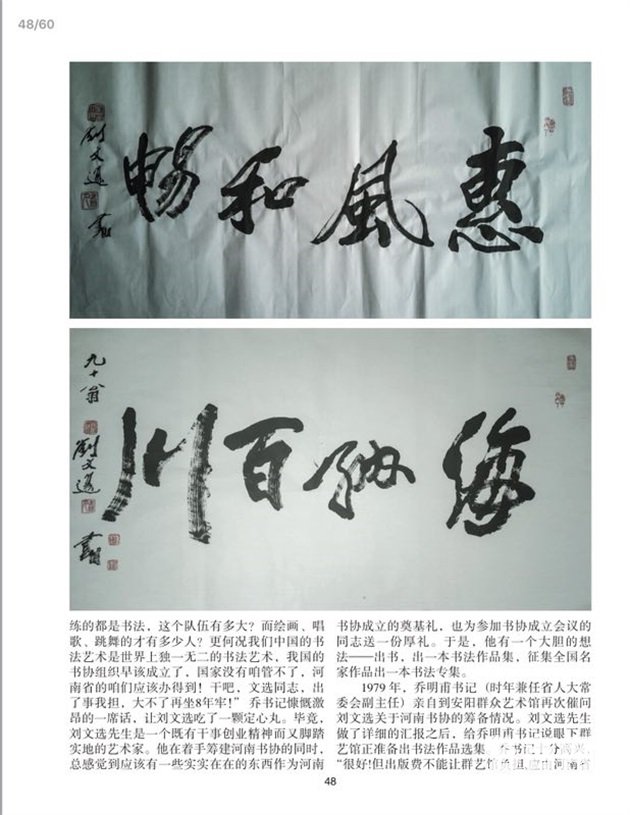 48/60
惠風和暢
劉文選
書
海納百川
九十翁
劉文選
書
练的都是书法，这个队伍有多大？而绘画、唱
歌、跳舞的才有多少人？更何况我们中国的书
法艺术是世界上独一无二的书法艺术，我国的
书协组织早该成立了，国家没有咱管不了，河南
省的咱们应该办得到！干吧，文选同志，出
了事我担，大不了再坐8年牢！”乔书记慷慨激
昂的一席话，让刘文选吃了一颗定心丸。毕竟，
刘文选先生是一个既有干事创业精神而又脚踏
实地的艺术家。他在着手筹建河南书协的同时，
总感觉到应该有一些实实在在的东西作为河南
书协成立的奠基礼，也为参加书协成立会议的
同志送一份厚礼。于是，他有一个大胆的想
法——出书，出一本书法作品集，征集全国名
家作品出一本书法专集。
1979 年，乔明甫书记（时年兼任省人大常
委会副主任）亲自到安阳群众艺术馆再次催问
刘文选关于河南书协的筹备情况。刘文选先生
做了详细的汇报之后，给乔明甫书记说眼下群
艺馆正准备出书法作品选集。
“很好！但出版费不能让群艺馆
48